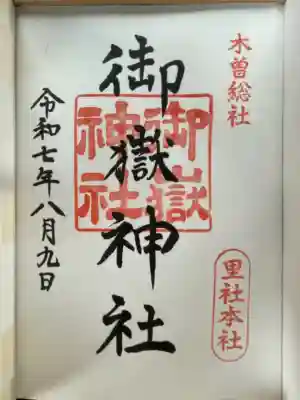 木曽総社
里社本社
御嶽神社
御嶽
神社
令和七年八月九日